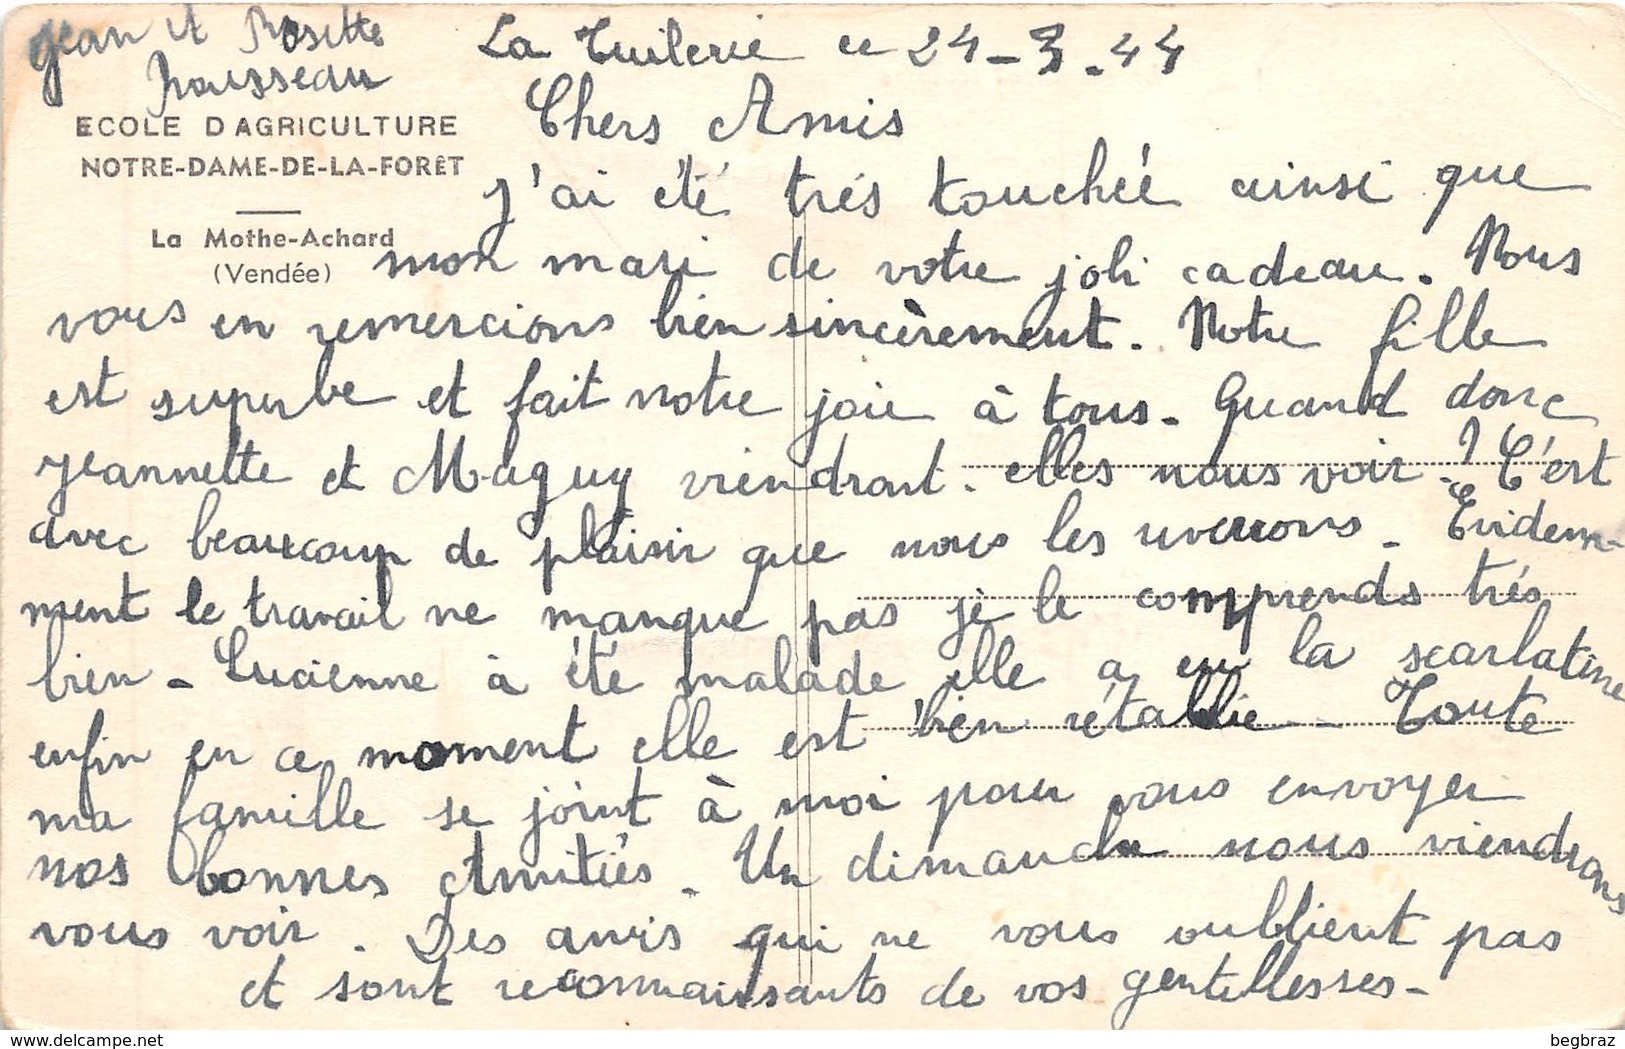 Jean et Rosette
Rousseau
La Tuilerie ce 24-3-44
ECOLE D'AGRICULTURE
NOTRE-DAME-DE-LA-FORÊT
La Mothe-Achard
(Vendée)
Chers Amis
J'ai été trés touchée ainsi que
mon mari de votre joli cadeau. Nous
vous en remercions bien sincèrement. Notre fille
est superbe et fait notre joie à tous. Quand donc
Jeannette et Maguy viendront elles nous voir ? C'est
avec beaucoup de plaisir que nous les reverrons. Evidem-
ment le travail ne manque pas je le comprends trés
bien - Lucienne à été malade elle a eu la scarlatine
enfin en ce moment elle est bien rétablie - Toute
ma famille se joint à moi pour vous envoyer
nos bonnes Amitiés. Un dimanche nous viendrons
vous voir. Des amis qui ne vous oublient pas
et sont reconnaissants de vos gentillesses-
www.delcampe.net
begbraz